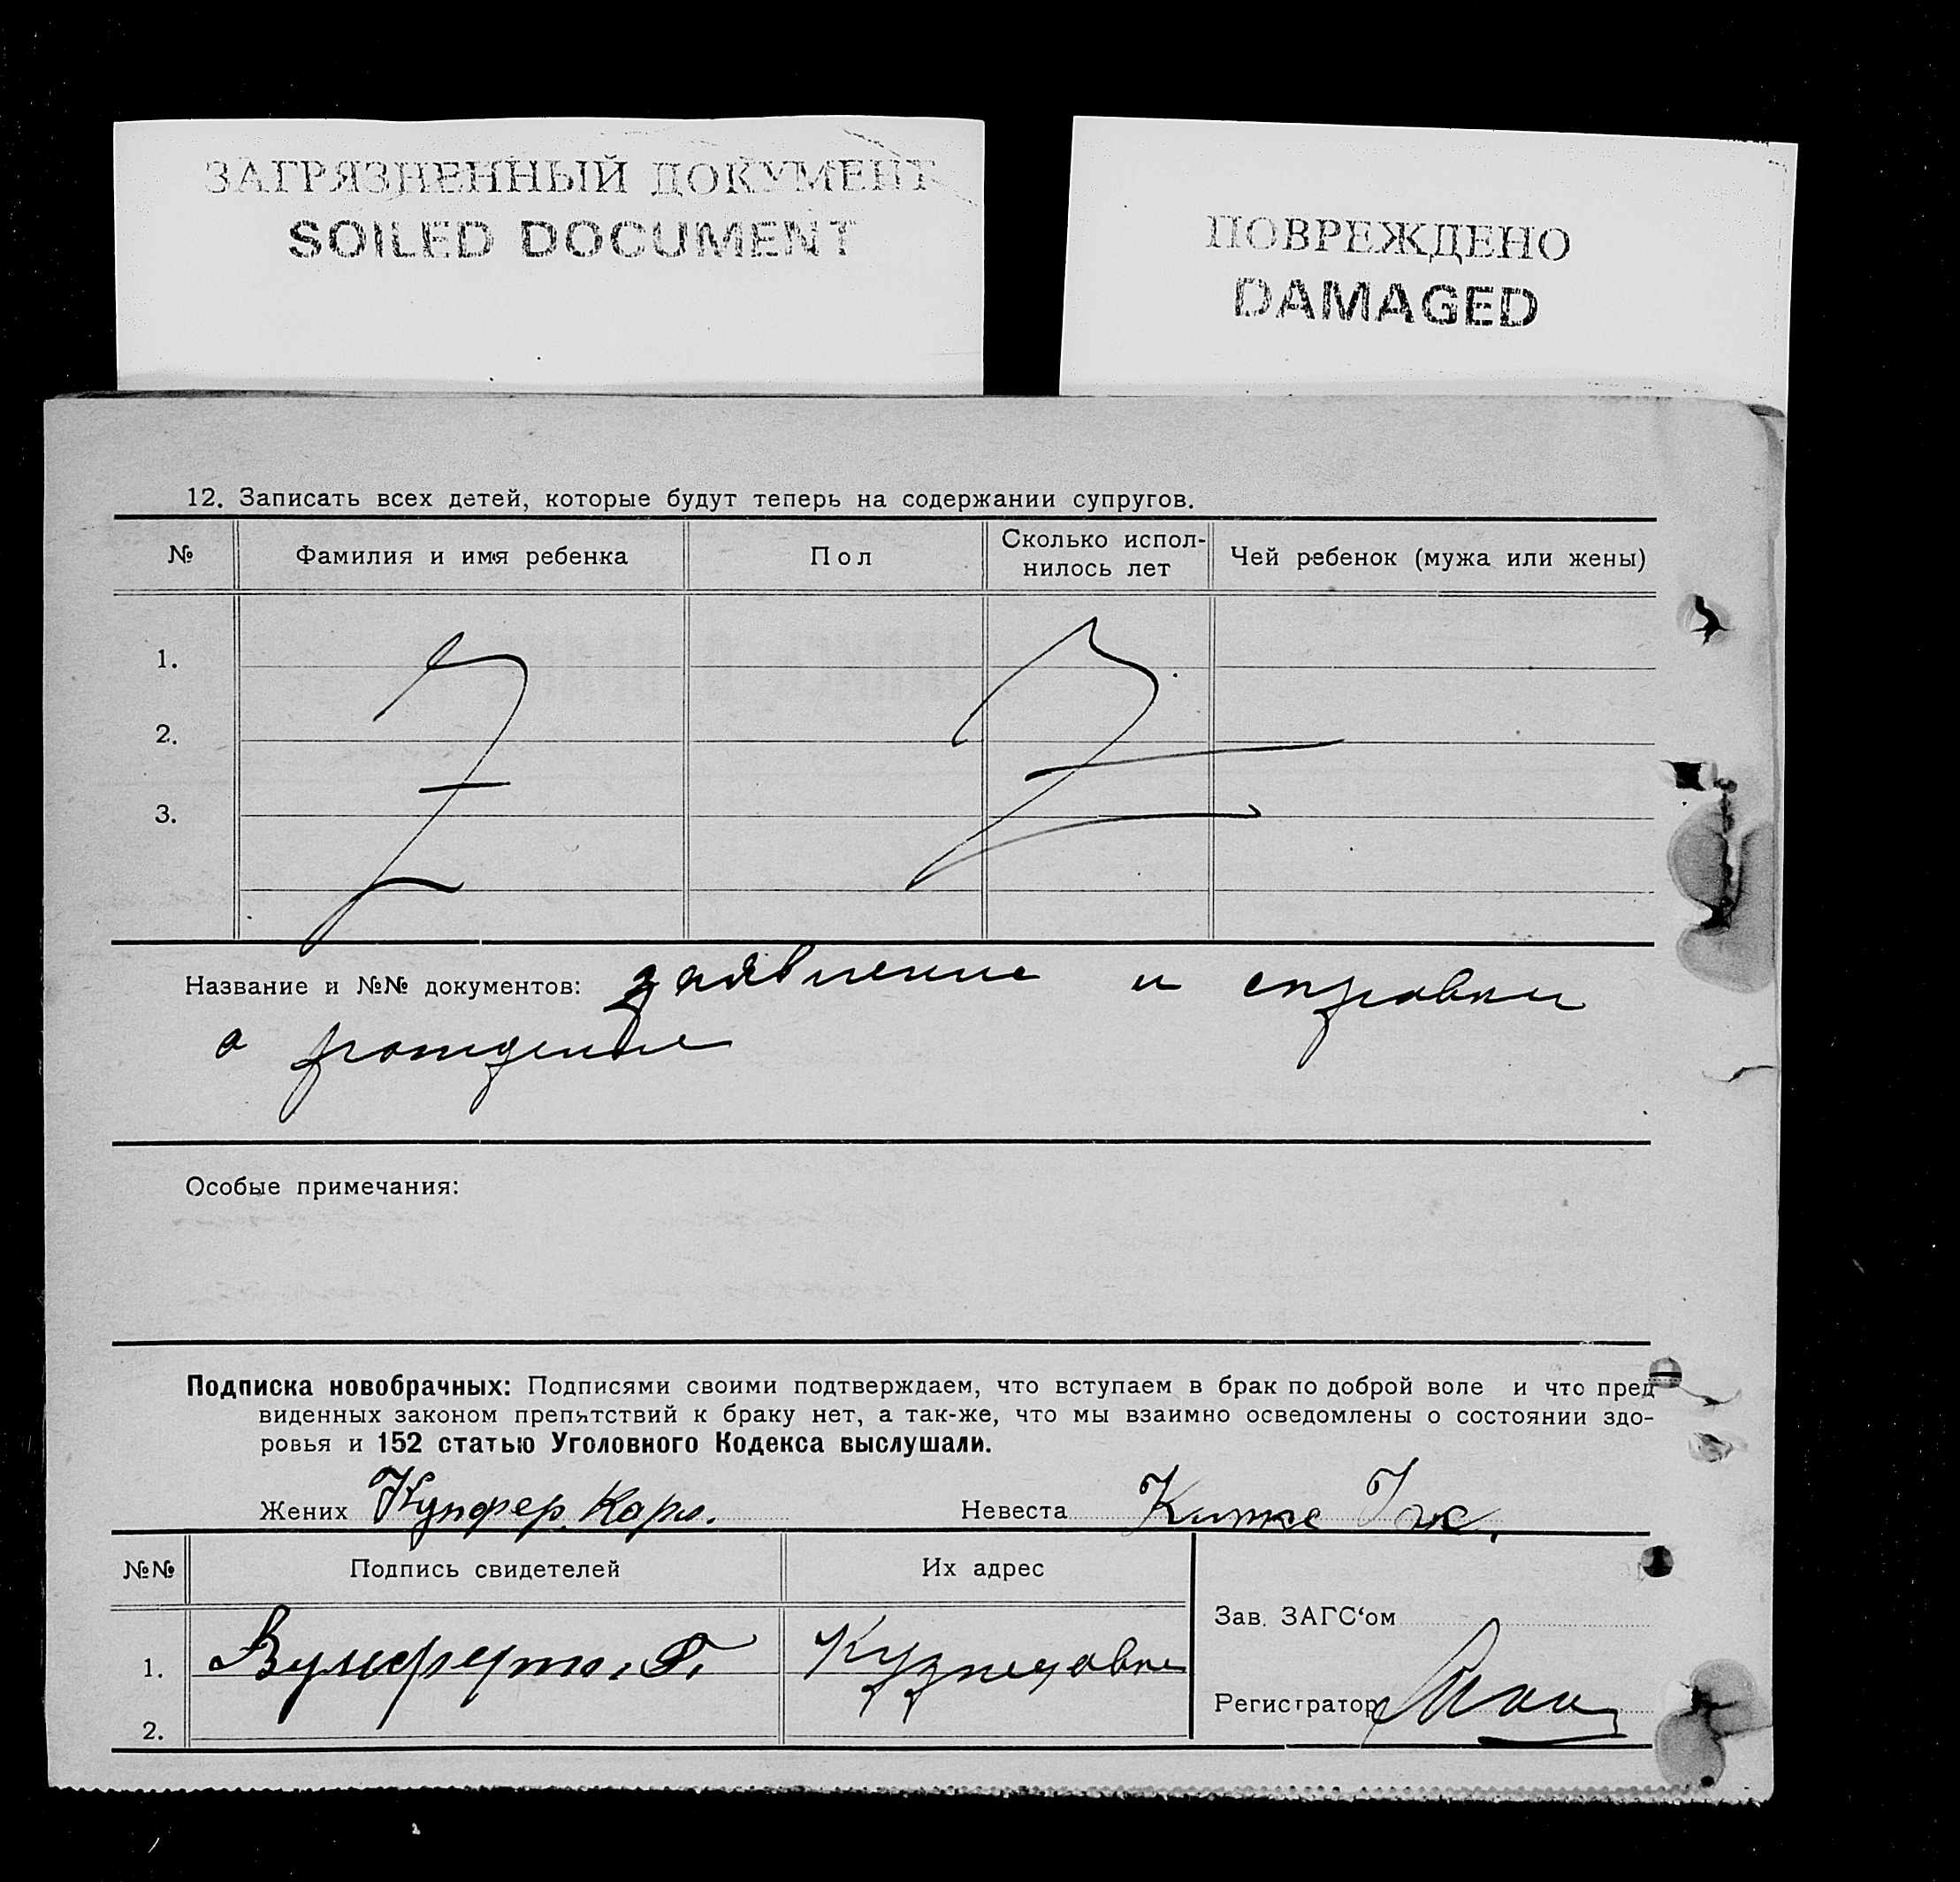 ЗАГРЯЗНЕННЫЙ ДОКУМЕНТ
SOILED DOCUMENT
ПОВРЕЖДЕНО
DAMAGED
12. Записать всех детей, которые будут теперь на содержании супругов.
№ Фамилия и имя ребенка Пол Сколько испол-нилось лет Чей ребенок (мужа или жены)
1.
2.
3.
Название и №№ документов: заявление и справки
о рождение
Особые примечания:
Подписка новобрачных: Подписями своими подтверждаем, что вступаем в брак по доброй воле и что пред
виденных законом препятствий к браку нет, а так-же, что мы взаимно осведомлены о состоянии здо-
ровья и 152 статью Уголовного Кодекса выслушали.
Жених Купфер Карл. Невеста
№№ Подпись свидетелей Их адрес
Зав. ЗАГС‘ом
1.
Регистратор
2.